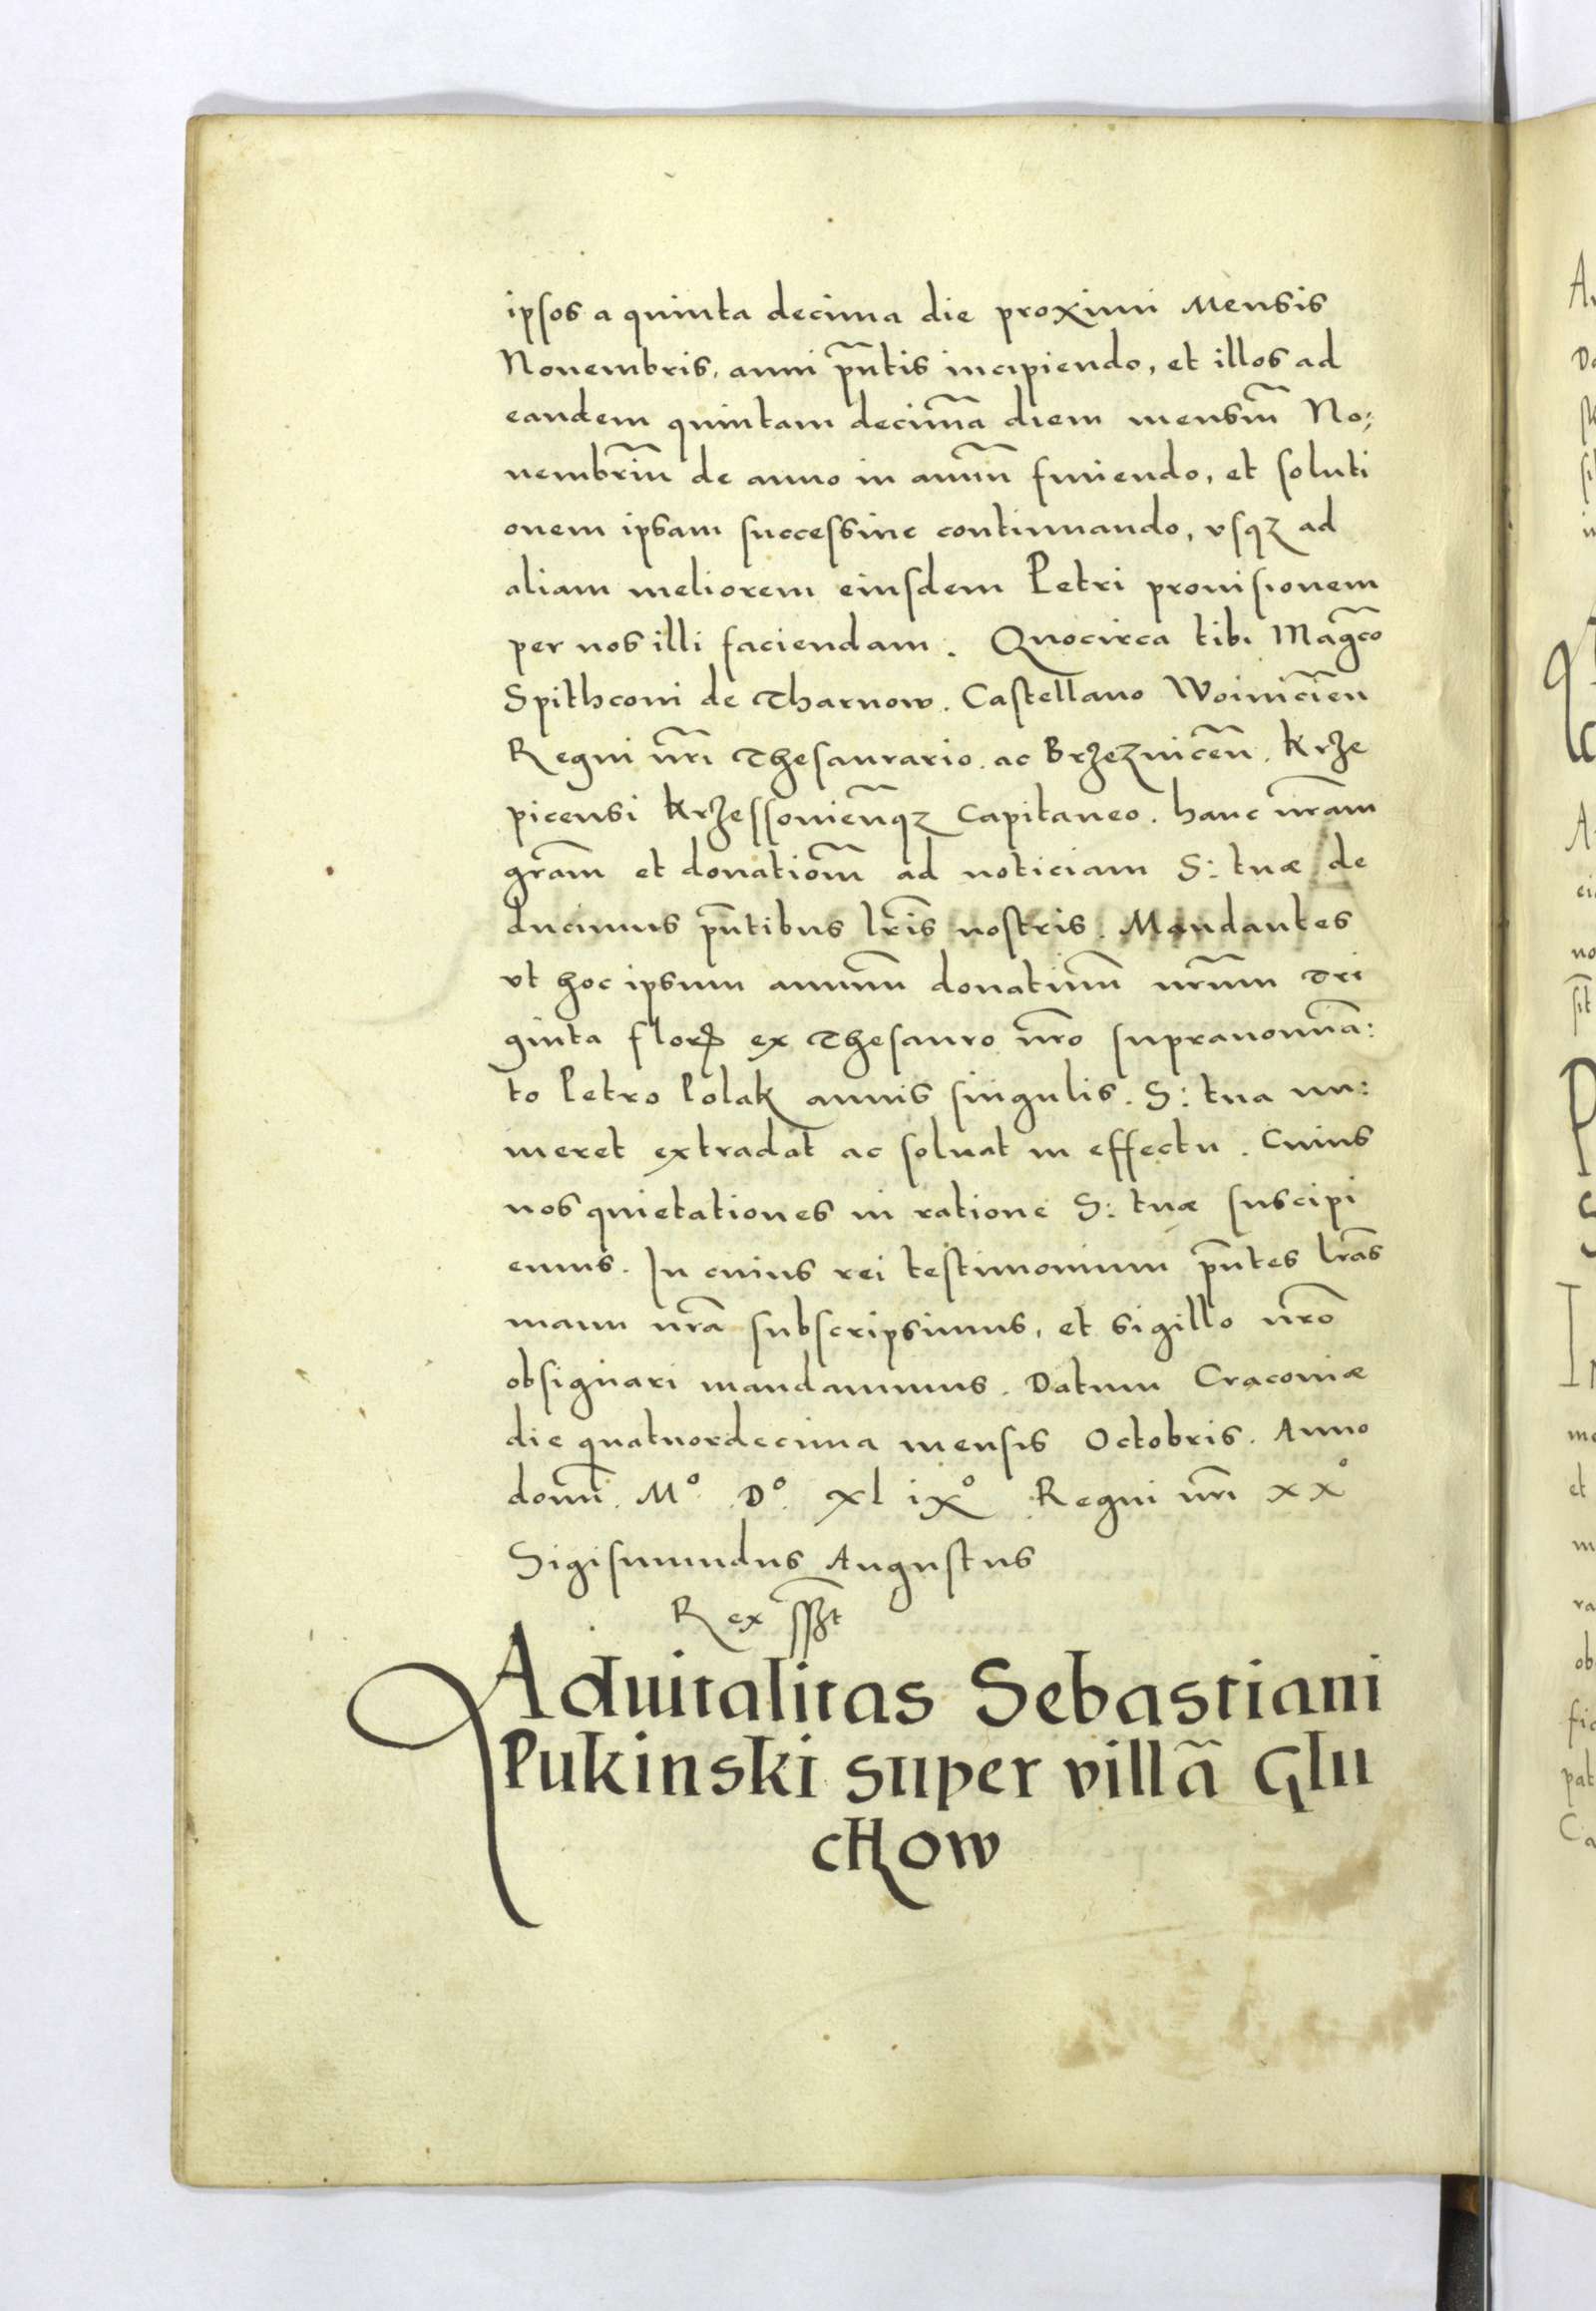 ipsos a quinta decima die proximi Mensis
Nouembris, anni pñtis incipiendo, et illos ad
eandem quintam decimã diem mensiũ No:
uembriũ de anno in annũ finiendo, et soluti
onem ipsam successiue continuando, vsqꝫ ad
aliam meliorem eiusdem Petri prouisionem
per nos illi faciendam. Quocirca tibi Magco
Spithconi de Tharnow. Castellano Woiniciẽn
Regni nr̃i Thesaurario. ac Brzeznicẽn. Krze
picensi Krzessouieñqꝫ Capitaneo. hanc nr̃am
gr̃am et donatiom̃ ad noticiam S: tuæ de
ducimus pñtibus lr̃is nostris. Mandantes
vt hoc ipsum annuũ donatiuũ nr̃um Tri
ginta florꝝ ex Thesauro nr̃o supranomiã:
to Petro Polak annis singulis. S: tua nu:
meret extradat ac soluat in effectu. Cuius
nos quietationes in ratione S: tuæ suscipi
emus. In cuius rei testimonium pñtes lr̃as
manu nr̃a subscripsimus, et sigillo nr̃o
obsignari mandauimus. Datum Cracouiæ
die quatuordecima mensis Octobris. Anno
domĩ. M° D° xl ix° Regni nr̃i xx°
Sigismundus Augustus
Rex sszt
Aduitalitas Sebastiani
Pukinski super villã Glu
chow